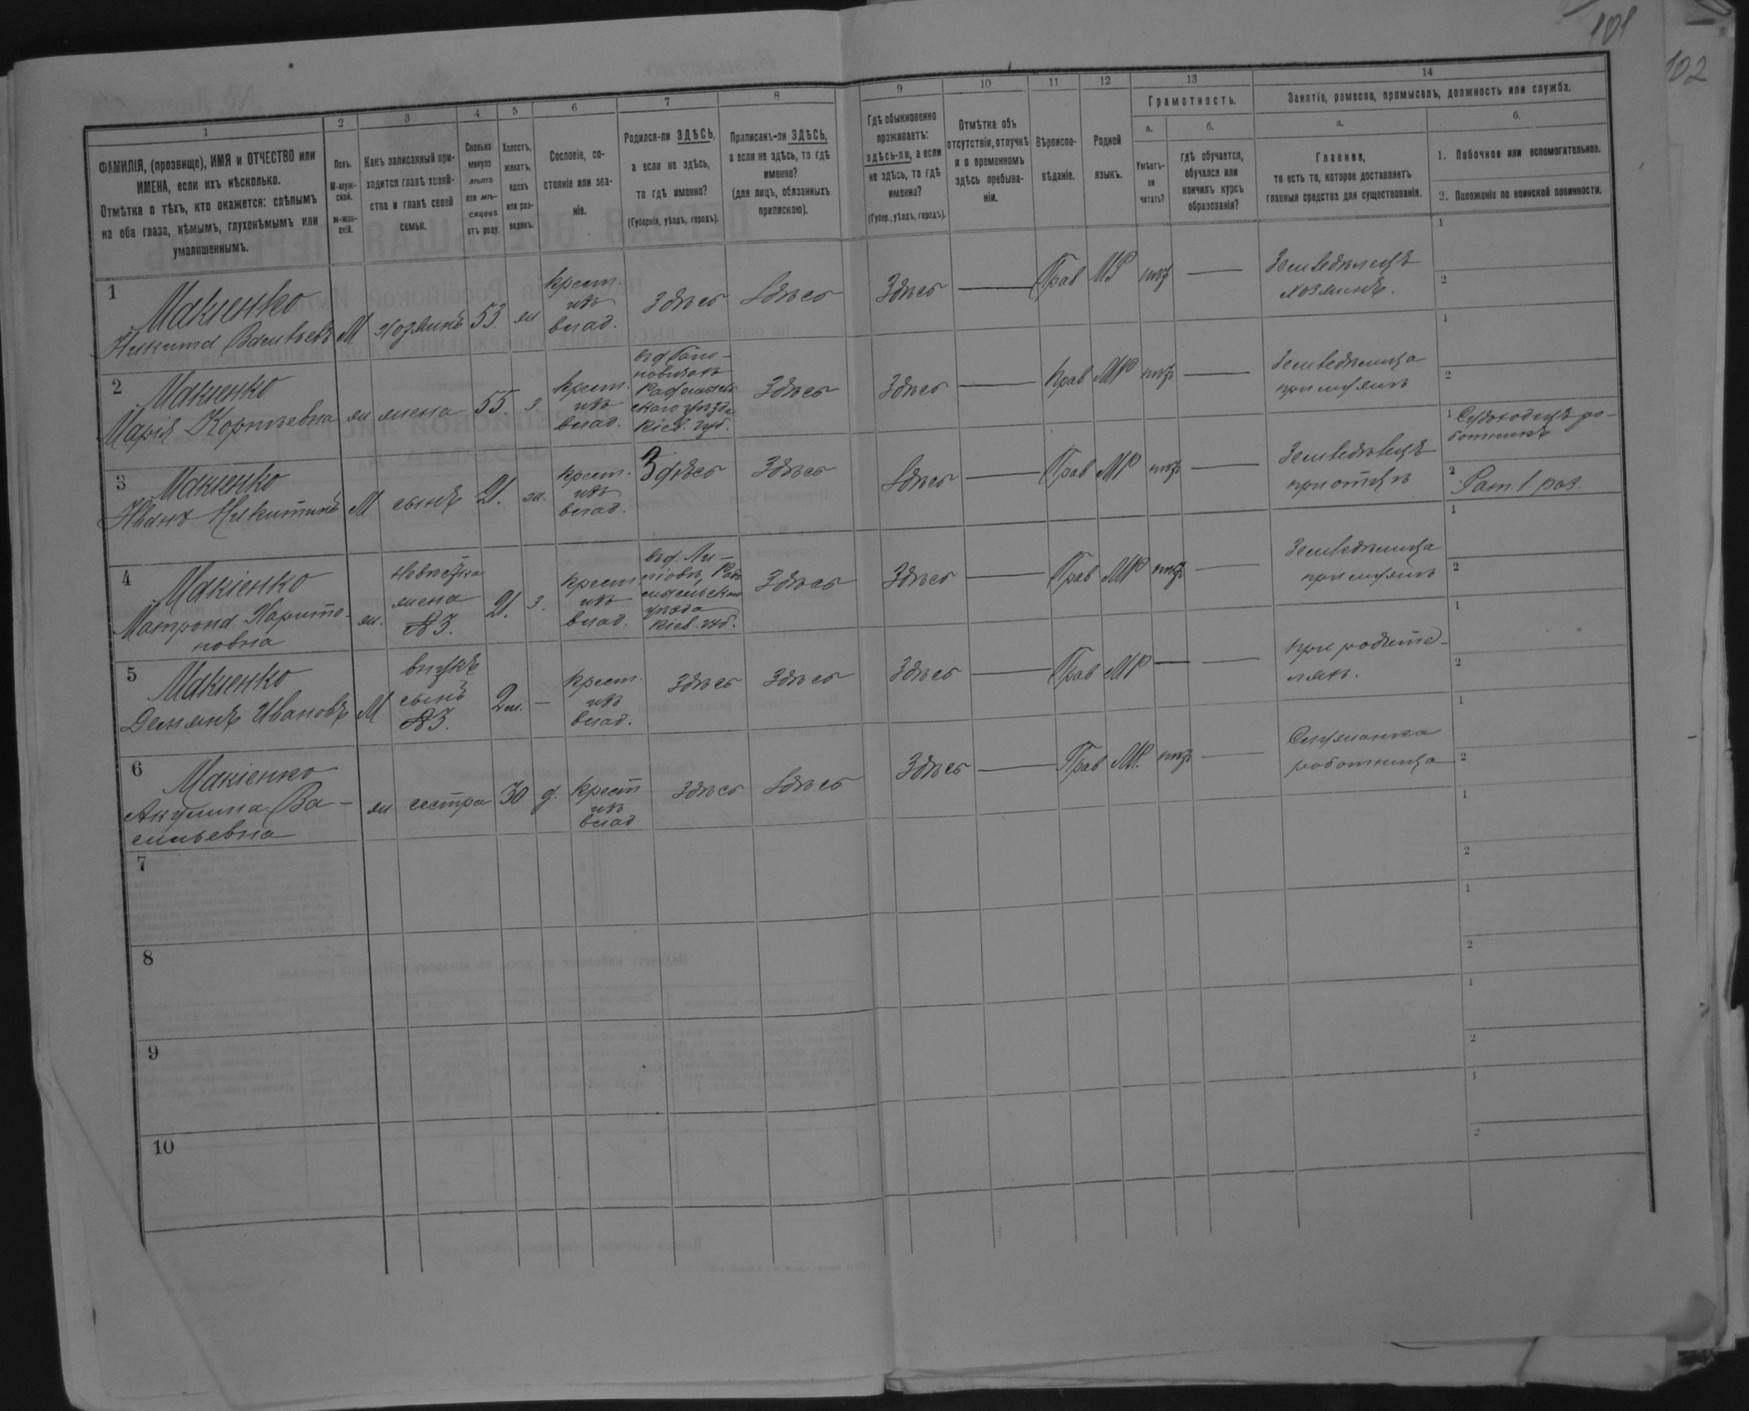 101
102
1
2
3
4
5
6
7
8
9
10
11
12
13
14
ФАМИЛІЯ, (прозвище), ИМЯ и ОТЧЕСТВО или
ИМЕНА, если ихъ нѣсколько.
Отмѣтка о тѣхъ, кто окажется: слѣпымъ
на оба глаза, нѣмымъ, глухонѣмымъ или
умалишеннымъ.
Полъ.
М-муж-
ской.
ж-жен-
скій.
Какъ записанный при-
ходится главѣ хозяй-
ства и главѣ своей
семьи.
Сколько
минуло
лѣтъ
или мѣ-
сяцевъ
отъ роду.
Холостъ,
женатъ,
вдовъ
или раз-
веденъ.
Сословіе, со-
стояніе или зва-
ніе.
Родился-ли ЗДѢСЬ,
а если не здѣсь,
то гдѣ именно?
(Губернія, уѣздъ, городъ).
Приписанъ-ли ЗДѢСЬ,
а если не здѣсь, то гдѣ
именно?
(для лицъ, обязанныхъ
припискою).
Гдѣ обыкновенно
проживаетъ:
здѣсь-ли, а если
не здѣсь, то гдѣ
именно?
(Губер., уѣздъ, городъ).
Отмѣтка объ
отсутствіи, отлучкѣ
и о временномъ
здѣсь пребыва-
ніи.
Вѣроиспо-
вѣданіе.
Родной
языкъ.
Грамотность.
а.
б.
Умѣетъ-
ли
читать?
Гдѣ обучается,
обучался или
кончилъ курсъ
образованія?
Занятіе, ремесло, промыселъ, должность или служба.
а.
б.
Главное,
то есть то, которое доставляетъ
главныя средства для существованія.
1. Побочное или вспомогательное.
2. Положеніе по воинской повинности.
1
Макіенко
Никита Васильевъ М хозяинъ 53 ж крест. изъ влад. Здѣсь Здѣсь Здѣсь — Прав МР нѣтъ — Земледѣлецъ хозяинъ.
1
2
2
Макіенко
Марія Корнѣевна ж жена 55. з крест. изъ влад.
Радомысль-
скаго уѣзда
Кіев. губ.
Здѣсь Здѣсь — Прав МР нѣтъ — Земледѣлица при мужѣ
1
2
3
Макіенко
Иванъ Никитинъ М сынъ 21. ж. крест. изъ влад. Здѣсь Здѣсь Здѣсь — Прав МР нѣтъ — Земледѣлецъ при отцѣ
1
ботникъ
2 Рат. 1 раз.
4
Макіенко
Матрона Харито-
новна
ж. невѣстка жена №3. 21. з. крест изъ влад.
уѣзда
Кіев. губ.
Здѣсь Здѣсь — Прав МР нѣтъ — Земледѣлица при мужѣ
1
2
5
Макіенко
Демьянъ Ивановъ М внукъ сынъ №3. 2 м. — крест. изъ влад. Здѣсь Здѣсь Здѣсь — Прав МР — — При родите-
ляхъ.
1
2
6
Макіенко
Акулина Ва-
сильевна
ж сестра 30 д. крест изъ влад Здѣсь Здѣсь Здѣсь — Прав МР. нѣтъ — Служанка
работница
1
2
7
1
2
8
1
2
9
1
2
10
1
2